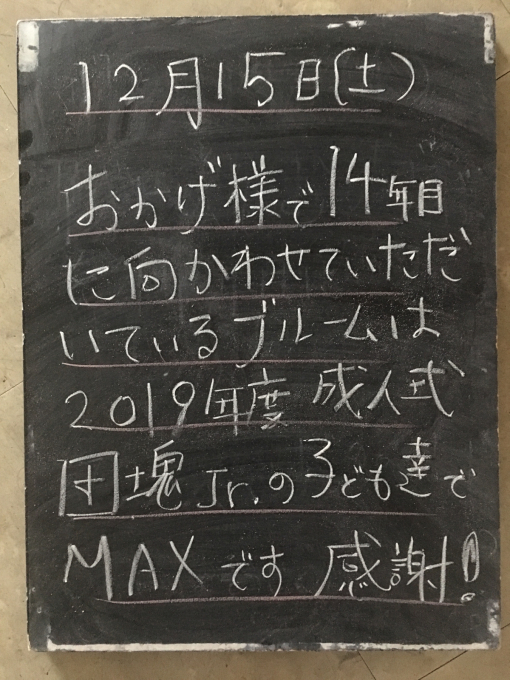 12月15日(土)
おかげ様で14年目
に向かわせていただ
いているブルームは
2019年度 成人式
団塊Jr.の子ども達で
MAXです 感謝!